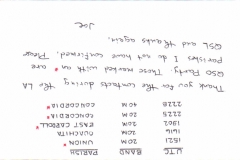 UTC BAND PARISH
1521 20M UNION *
1616 20M OUACHITA
1907 20M EAST CARROLL *
2225 20M CONCORDIA *
2228 40M CONCORDIA *
Thank you for the contacts during the LA
QSO Party. Those marked with an * are
parishes I do not have confirmed. Please
QSL and thanks again.
JOE